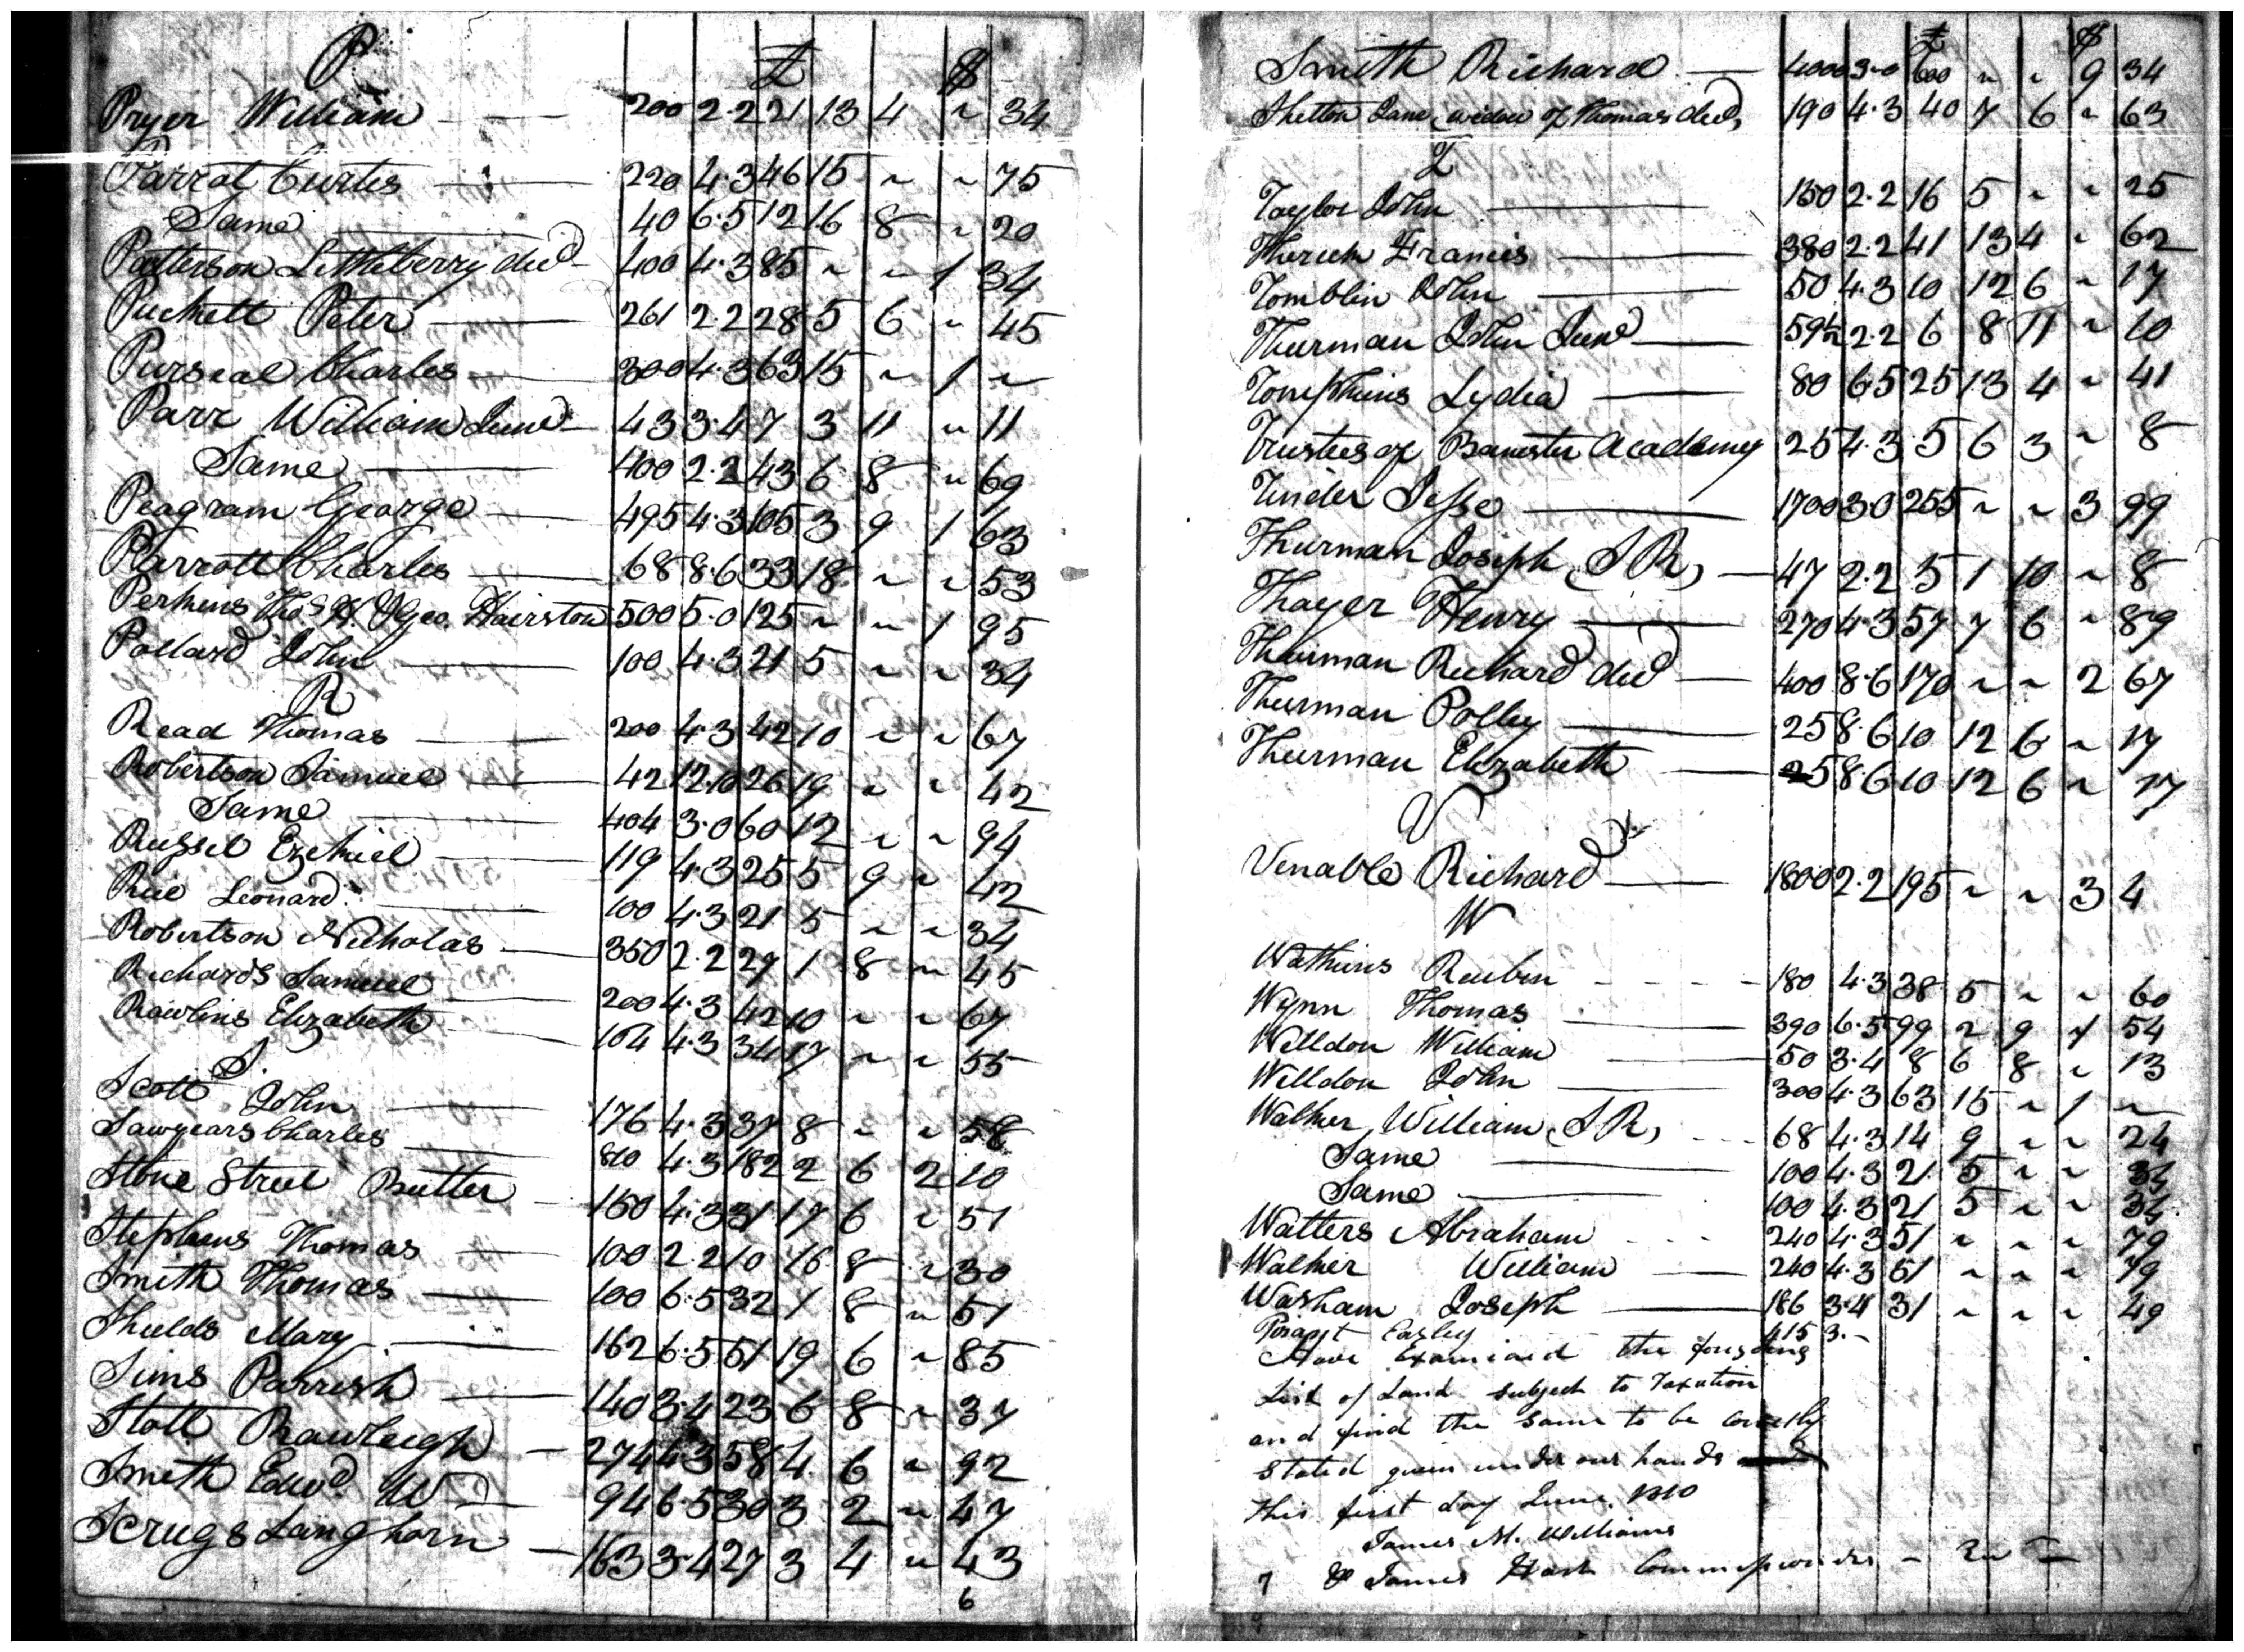 P £ $
Pryer William 200 2.2 21 13 4 ~ 34
Parrot Curtes 220 4.3 46 15 ~ ~ 75
Same 40 6.5 12 16 8 ~ 20
Patterson Littleberry decd 400 4.3 85 ~ ~ 1 34
Puckett Peter 261 2.2 28 5 6 ~ 45
Purseal Charles 300 4.3 63 15 ~ 1 ~
Parr William Junr 43 3.4 7 3 11 ~ 11
Same 400 2.2 43 6 8 ~ 69
Peagram George 495 4.3 105 3 9 1 63
Parrott Charles 68 8.6 33 18 ~ ~ 53
Perkins Thos. H. & Geo. Hairston 500 5.0 125 ~ ~ 1 95
Pollard John 100 4.3 21 5 ~ ~ 34
R
Read Thomas 200 4.3 42 10 ~ ~ 67
Robertson Samuel 42 12.10 26 19 ~ ~ 42
Same 404 3.0 60 12 ~ ~ 94
Russel Ezekiel 119 4.3 25 5 9 ~ 42
Rice Leonard 100 4.3 21 5 ~ ~ 34
Robertson Nicholas 350 2.2 27 1 8 ~ 45
Richards Samuel 200 4.3 42 10 ~ ~ 67
Rawlins Elizabeth 164 4.3 34 17 ~ ~ 55
S.
Scott John 176 4.3 37 8 ~ ~ 58
Sawyears Charles 810 4.3 182 2 6 2 10
Stone Street Butler 150 4.3 31 17 6 ~ 51
Stephens Thomas 100 2.2 10 16 8 ~ 30
Smith Thomas 100 6.5 32 1 8 ~ 51
Shields Mary 162 6.5 51 19 6 ~ 85
Sims Parrish 140 3.4 23 6 8 ~ 37
Stott Rawleigh 274 4.3 58 4 6 ~ 92
Smith Edwd. W 94 6.5 30 3 2 ~ 47
Scrugs Langhorn 163 3.4 27 3 4 ~ 43
6
£ $
Smith Richard 4000 3.0 600 ~ ~ 9 34
Shelton Jane (widow of Thomas decd) 190 4.3 40 7 6 ~ 63
T
Taylor John 150 2.2 16 5 ~ ~ 25
Francis 380 2.2 41 13 4 ~ 62
Tomblin John 50 4.3 10 12 6 ~ 17
Thurman John Junr 59½ 2.2 6 8 11 ~ 10
Tompkins Lydia 80 6.5 25 13 4 ~ 41
Trustees of Banister Academy 25 4.3 5 6 3 ~ 8
Tinder Jesse 1700 3.0 255 ~ ~ 3 99
Thurman Joseph (S R) 47 2.2 5 1 10 ~ 8
Thayer Henry 270 4.3 57 7 6 ~ 89
Thurman Richard decd 400 8.6 170 ~ ~ 2 67
Thurman Polley 25 8.6 10 12 6 ~ 17
Thurman Elizabeth 25 8.6 10 12 6 ~ 17
V
Venable Richard 1800 2.2 195 ~ ~ 3 4
W
Watkins Reuben 180 4.3 38 5 ~ ~ 60
Wynn Thomas 390 6.5 99 2 9 1 54
Welldon William 50 3.4 8 6 8 ~ 13
Welldon John 300 4.3 63 15 ~ 1 ~
Walker William (S R) 68 4.3 14 9 ~ ~ 24
Same 100 4.3 21 5 ~ ~ 34
Same 100 4.3 21 5 ~ ~ 34
Watters Abraham 240 4.3 51 ~ ~ ~ 79
Walker William 240 4.3 51 ~ ~ ~ 79
Washam Joseph 186 3.4 31 ~ ~ ~ 49
Easley 415 3.-
Have Examined the foregoing
List of Land subject to Taxation
and find the same to be correctly
stated given under our hands
this first day June 1810
James M. Williams
7 & James Hart Commissioners